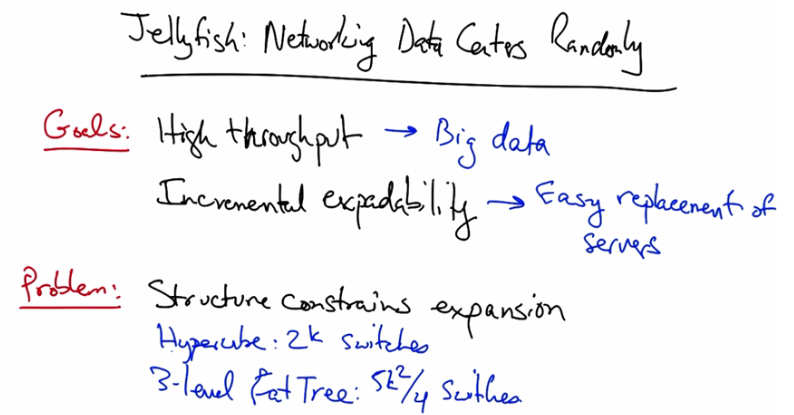 Jellyfish: Networking Data Centers Randomly
Goals: High throughput → Big data
Incremental expadability → Easy replacement of servers
Problem: Structure constrains expansion
Hypercube: 2k switches
3-level Fat Tree: 5k²/4 Switches